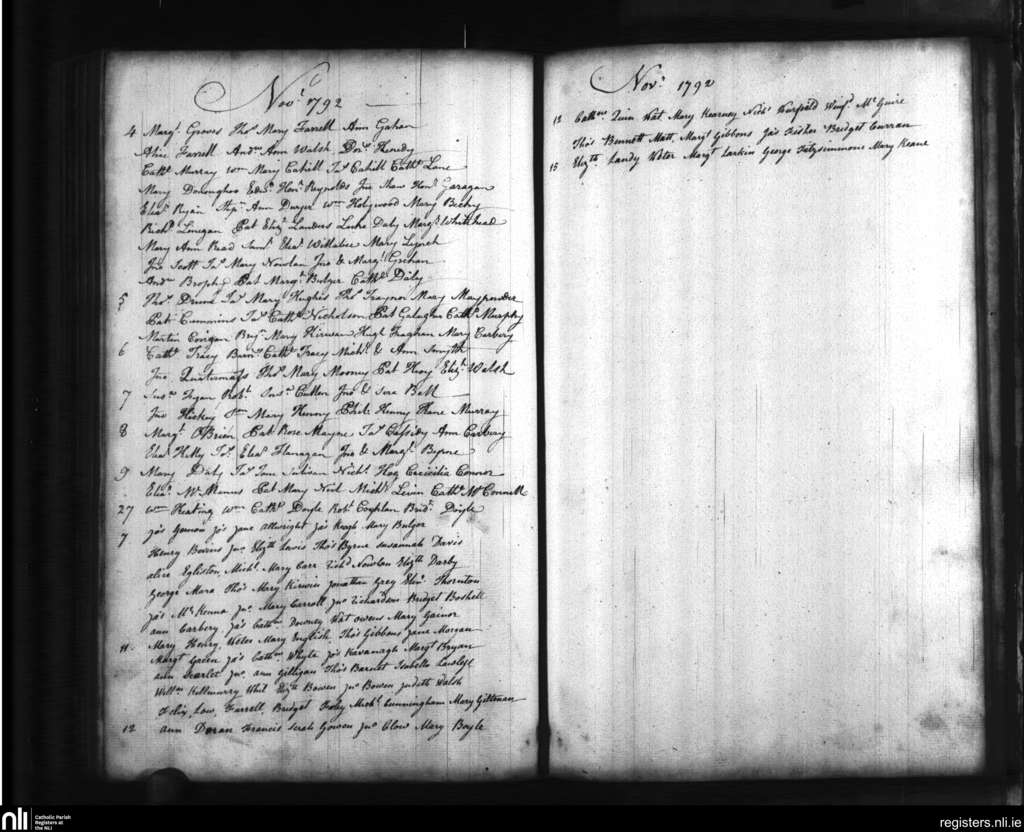 Novr. 1792
4 Margt. Groves Thos. Mary Farrell Ann Gahan
Alice Farrell Andw. Ann Walsh Dors. Heredy
Cathe. Murray Wm Mary Cahill Jas. Cahill Cathe. Lane
Mary Donoughoe Edwd. Honr. Reynolds Jno. Shaw Honr. Garagan
Eliza. Ryan Stepn. Ann Dwyer Wm Holywood Mary
Richd. Linegan Pat Elizh. Landers Luke Daly Margt. Whitehead
Mary Ann Read Saml. Elea. Mary Lynch
Jno. Scott Jas. Mary Nowlan Jno & Margt.
Andw. Brophy Pat Margt. Bulger Cathe. Daly
5 Thos. Jas. Mary Hughes Thos. Traynor Mary
Pat Cummins Jas. Cathe. Nicholson Pat Cathe. Murphy
Martin Corigan Mary Kirwan Hugh Mary Carbery
6 Cathe. Tracy Cathe. Tracy Michl. & Ann Smyth
Jno. Quatermass Thos. Mary Mooney Pat Elizh. Walsh
7 Susn. Fegan Robt. Susn. Cullen Jno & Sera Bell
Jno Hickey Mary Henny Henny Murray
8 Margt. OBrien Pat Rose Mayne Jas. Cassidy Ann Carbery
Elea. Kelly Elea. Flanagan Jno & Margt. Byrne
9 Mary Daly Jas. Nichs. Hog Cecicilia Connor
Eliza. McManus Pat Mary Neil Michl. Levin Cathe. McConnell
27 Wm Keating Wm Cathe. Doyle Robt. Coghlan Bridt. Doyle
7 Jas. Jas. Jane Allwright Jas. Keogh Mary Bulger
Henry Bowens Jno. Elizth Lewis Thos Byrne Susannah Davis
Alice Egliston Michl. Mary Carr Richd Nowlan Elizth Darby
George Mara Thos Mary Kirwin Jonathan Grey Thornton
Jas. McKenna Jno. Mary Carroll Jno Richardson Bridget Boshell
Ann Carbery Jas. Cathne. Downey Wat Owens Mary Gainor
11 Mary Henry Peter Mary English Thos Gibbons Jane Morgan
Margt Green Jas Cathn. Whyte Jas Kavanagh Margt Bryan
Ann Scarlet Jno. Ann Gilligan Thos Barnet Isabella
Willm. Kilmurry Elizth Bowen Jno Bowen Judith Walsh
Felix Low Farrell Bridget Foley Michl. Cunningham Mary
12 Ann Doran Francis Serah Gowen Jno Clow Mary Boyle
Novr. 1792
12 Cathne. Quin Pat Mary Kearney Nichs Winifd. McGuire
Thos Bennett Matt. Margt Gibbons Jas Fisher Bridget Curran
15 Elizth Landy Peter Margt Larkin George Fitzsimmons Mary Keane
nli Catholic Parish
Registers at
the NLI
registers.nli.ie